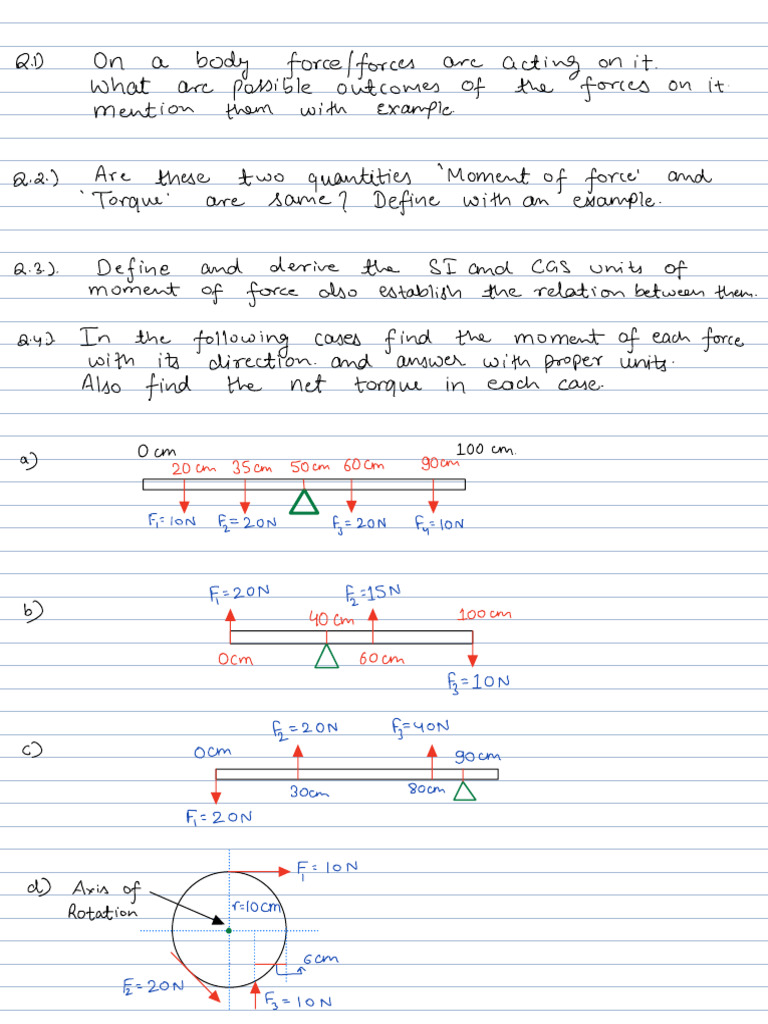 Q.1) On a body force/forces are acting on it.
What are possible outcomes of the forces on it
mention them with example.
Q.2.) Are these two quantities 'Moment of force' and
'Torque' are same? Define with an example.
Q.3.). Define and derive the SI and CGS units of
moment of force also establish the relation between them.
Q.4.) In the following cases find the moment of each force
with its direction. and answer with proper units.
Also find the net torque in each case.
a)
0 cm 100 cm.
20 cm 35 cm 50 cm 60 cm 90 cm
F₁=10N F₂=20N F₃=20N F₄=10N
b)
F₁=20N F₂=15N
40 cm 100 cm
0cm 60 cm
F₃=10N
c)
F₂=20N F₃=40N
0cm 90 cm
30cm 80cm
F₁=20N
d) Axis of
Rotation
F₁=10N
r=10cm
6cm
F₂=20N
F₃=10N